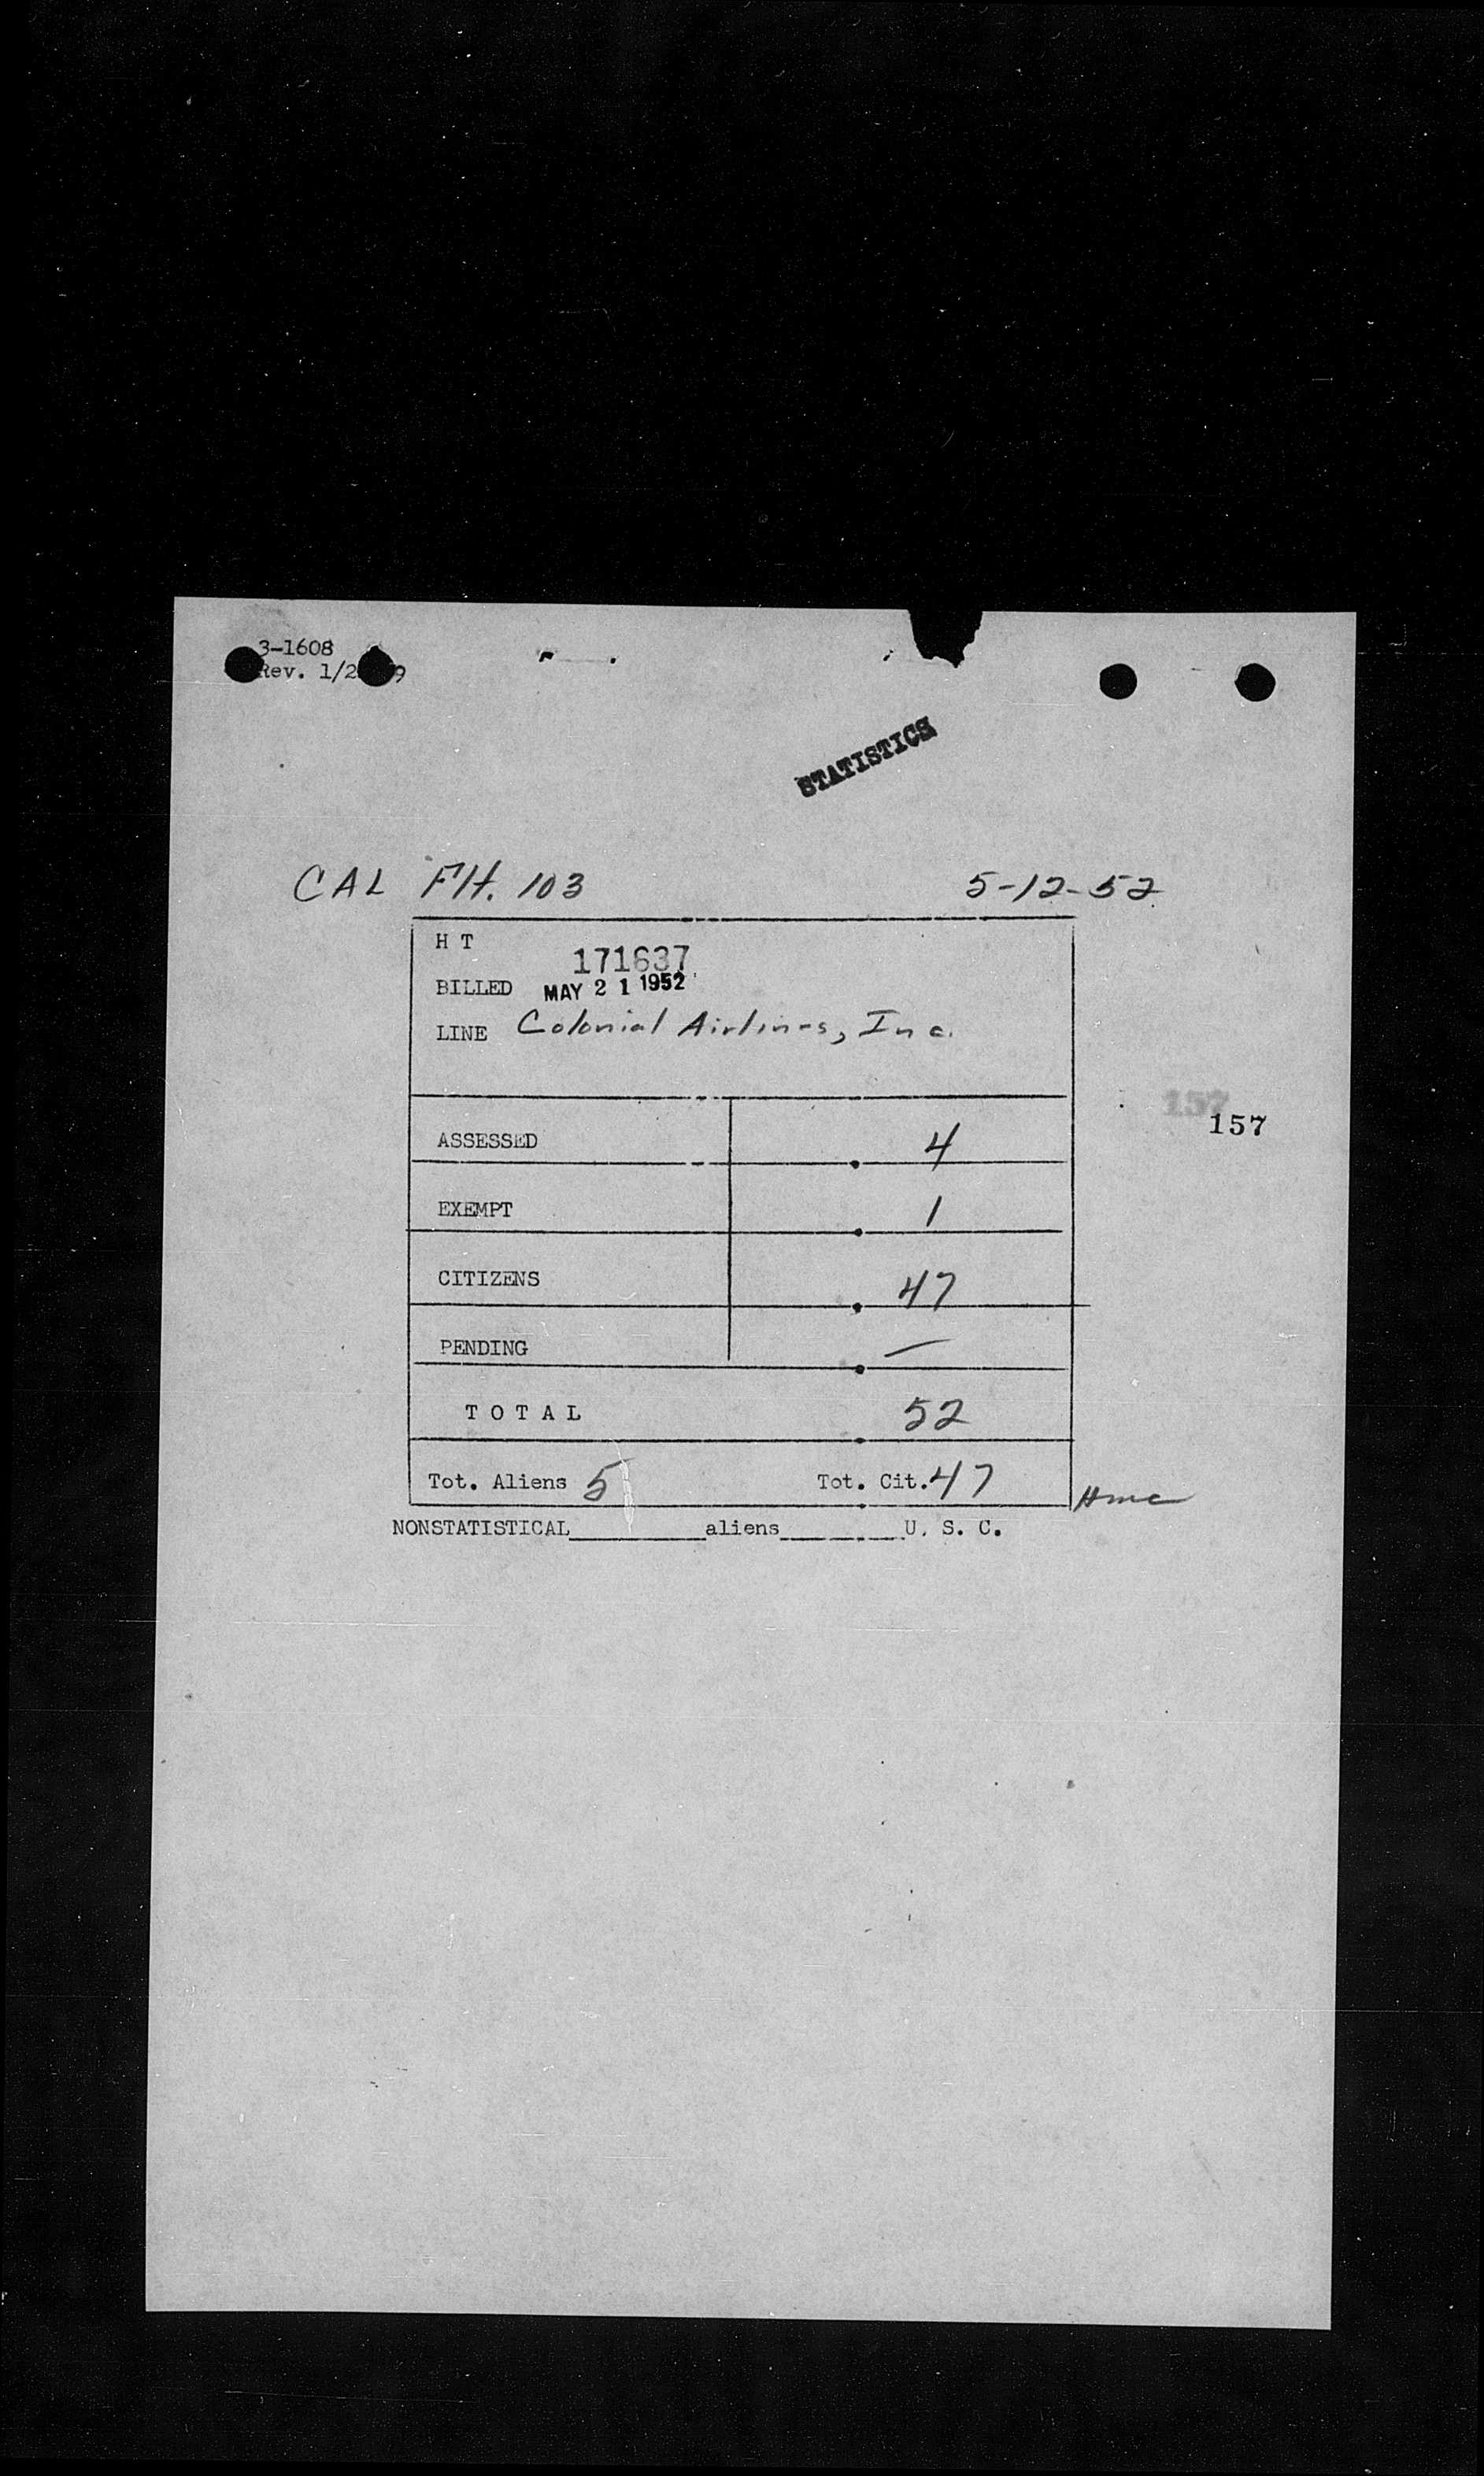 3-1608
Rev. 1/2 9
STATISTICS
CAL Flt. 103 5-12-52
H T 171637
BILLED MAY 21 1952
LINE Colonial Airlines, Inc.
157
157
ASSESSED 4
EXEMPT 1
CITIZENS 47
PENDING —
TOTAL 52
Tot. Aliens 5 Tot. Cit. 47
NONSTATISTICAL________aliens________U. S. C.